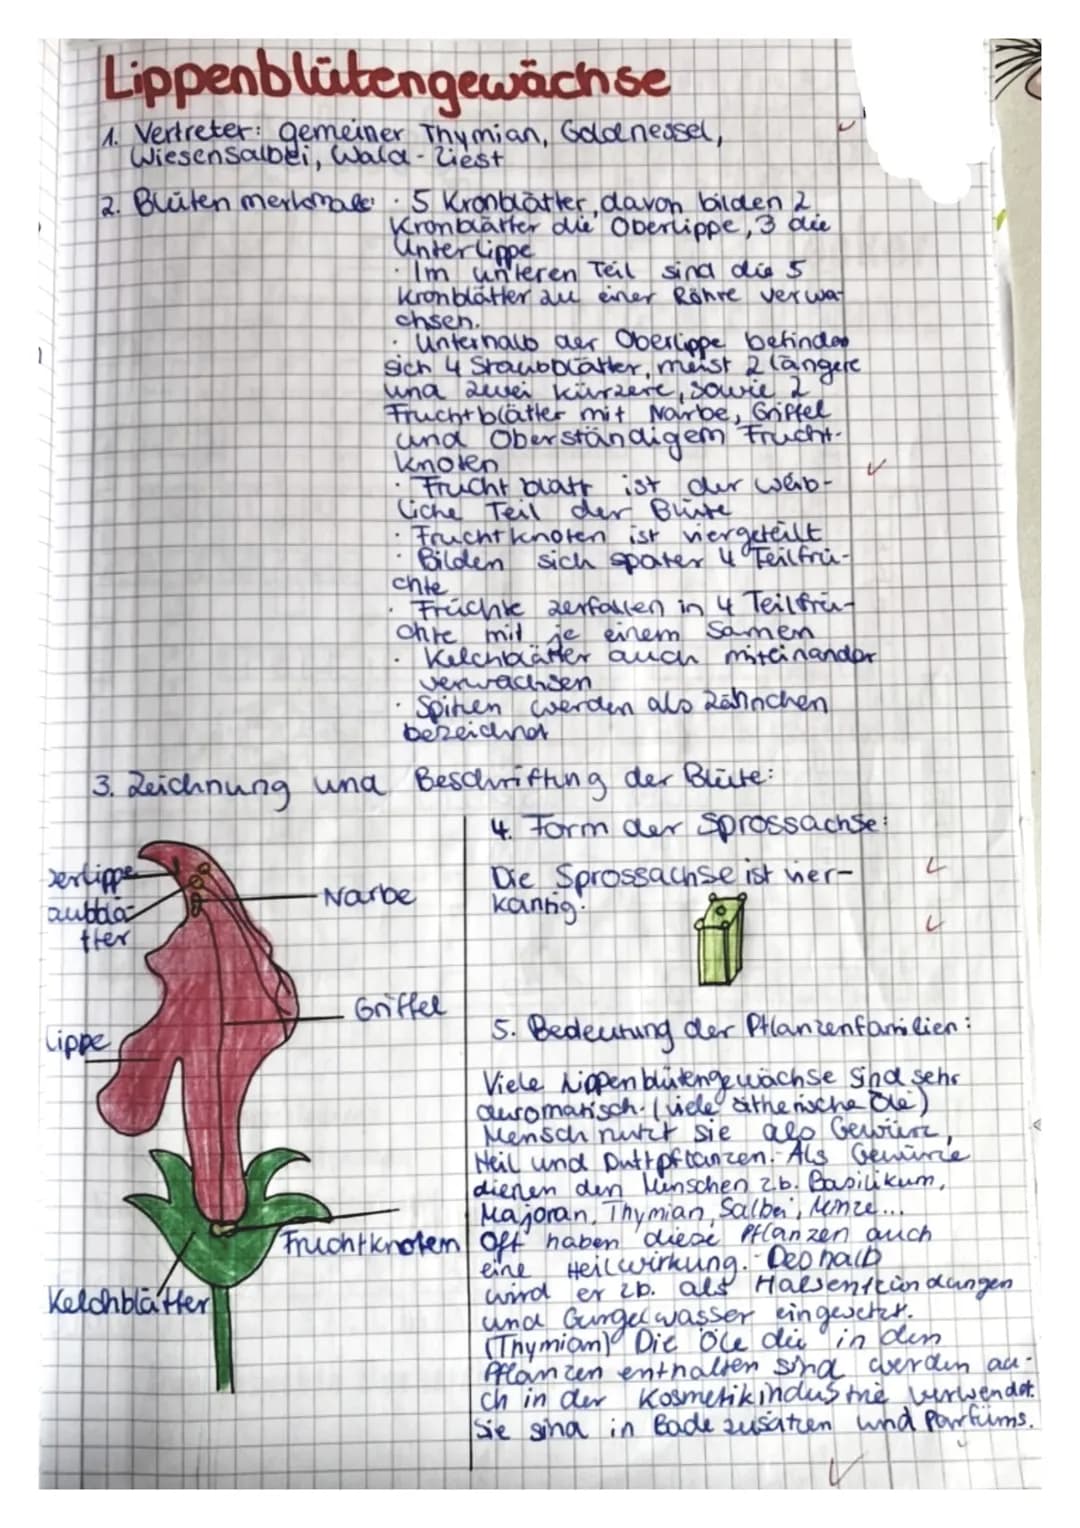 Lippenblütengewächse
1. Vertreter: gemeiner Thymian, Goldnessel,
Wiesensalbei, Wald-Ziest
2. Blütenmerkmale: · 5 Kronblätter, davon bilden 2
Kronblätter die Oberlippe, 3 die
Unterlippe
· Im unteren Teil sind die 5
Kronblätter zu einer Röhre verwa-
chsen.
· Unterhalb der Oberlippe befinden
sich 4 Staubblätter, meist 2 längere
und zwei kürzere, sowie 2
Fruchtblätter mit Narbe, Griffel
und Oberständigem Frucht-
knoten
· Fruchtblatt ist der weib-
liche Teil der Blüte
· Fruchtknoten ist viergeteilt
· Bilden sich später 4 Teilfrü-
chte
· Früchte zerfallen in 4 Teilfrü-
chte mit je einem Samen
· Kelchblätter auch miteinander
verwachsen
· Spitzen werden als Zähnchen
bezeichnet
3. Zeichnung und Beschriftung der Blüte:
erlippe
aubblä-
tter
Narbe
Griffel
lippe
Fruchtknoten
Kelchblätter
4. Form der Sprossachse:
Die Sprossachse ist vier-
kantig.
5. Bedeutung der Pflanzenfamilien:
Viele Lippenblütengewächse sind sehr
auromatisch. (viele ätherische Öle)
Mensch nutzt sie als Gewürz,
Heil und Duftpflanzen. Als Gewürze
dienen den Menschen z.b. Basilikum,
Majoran, Thymian, Salbei, Minze...
Oft haben diese Pflanzen auch
eine Heilwirkung. Deshalb
wird er zb. als Halsentzündungen
und Gurgelwasser eingesetzt.
(Thymian) Die Öle die in den
Pflanzen enthalten sind werden au-
ch in der Kosmetikindustrie verwendet.
Sie sind in Badezusätzen und Parfüms.